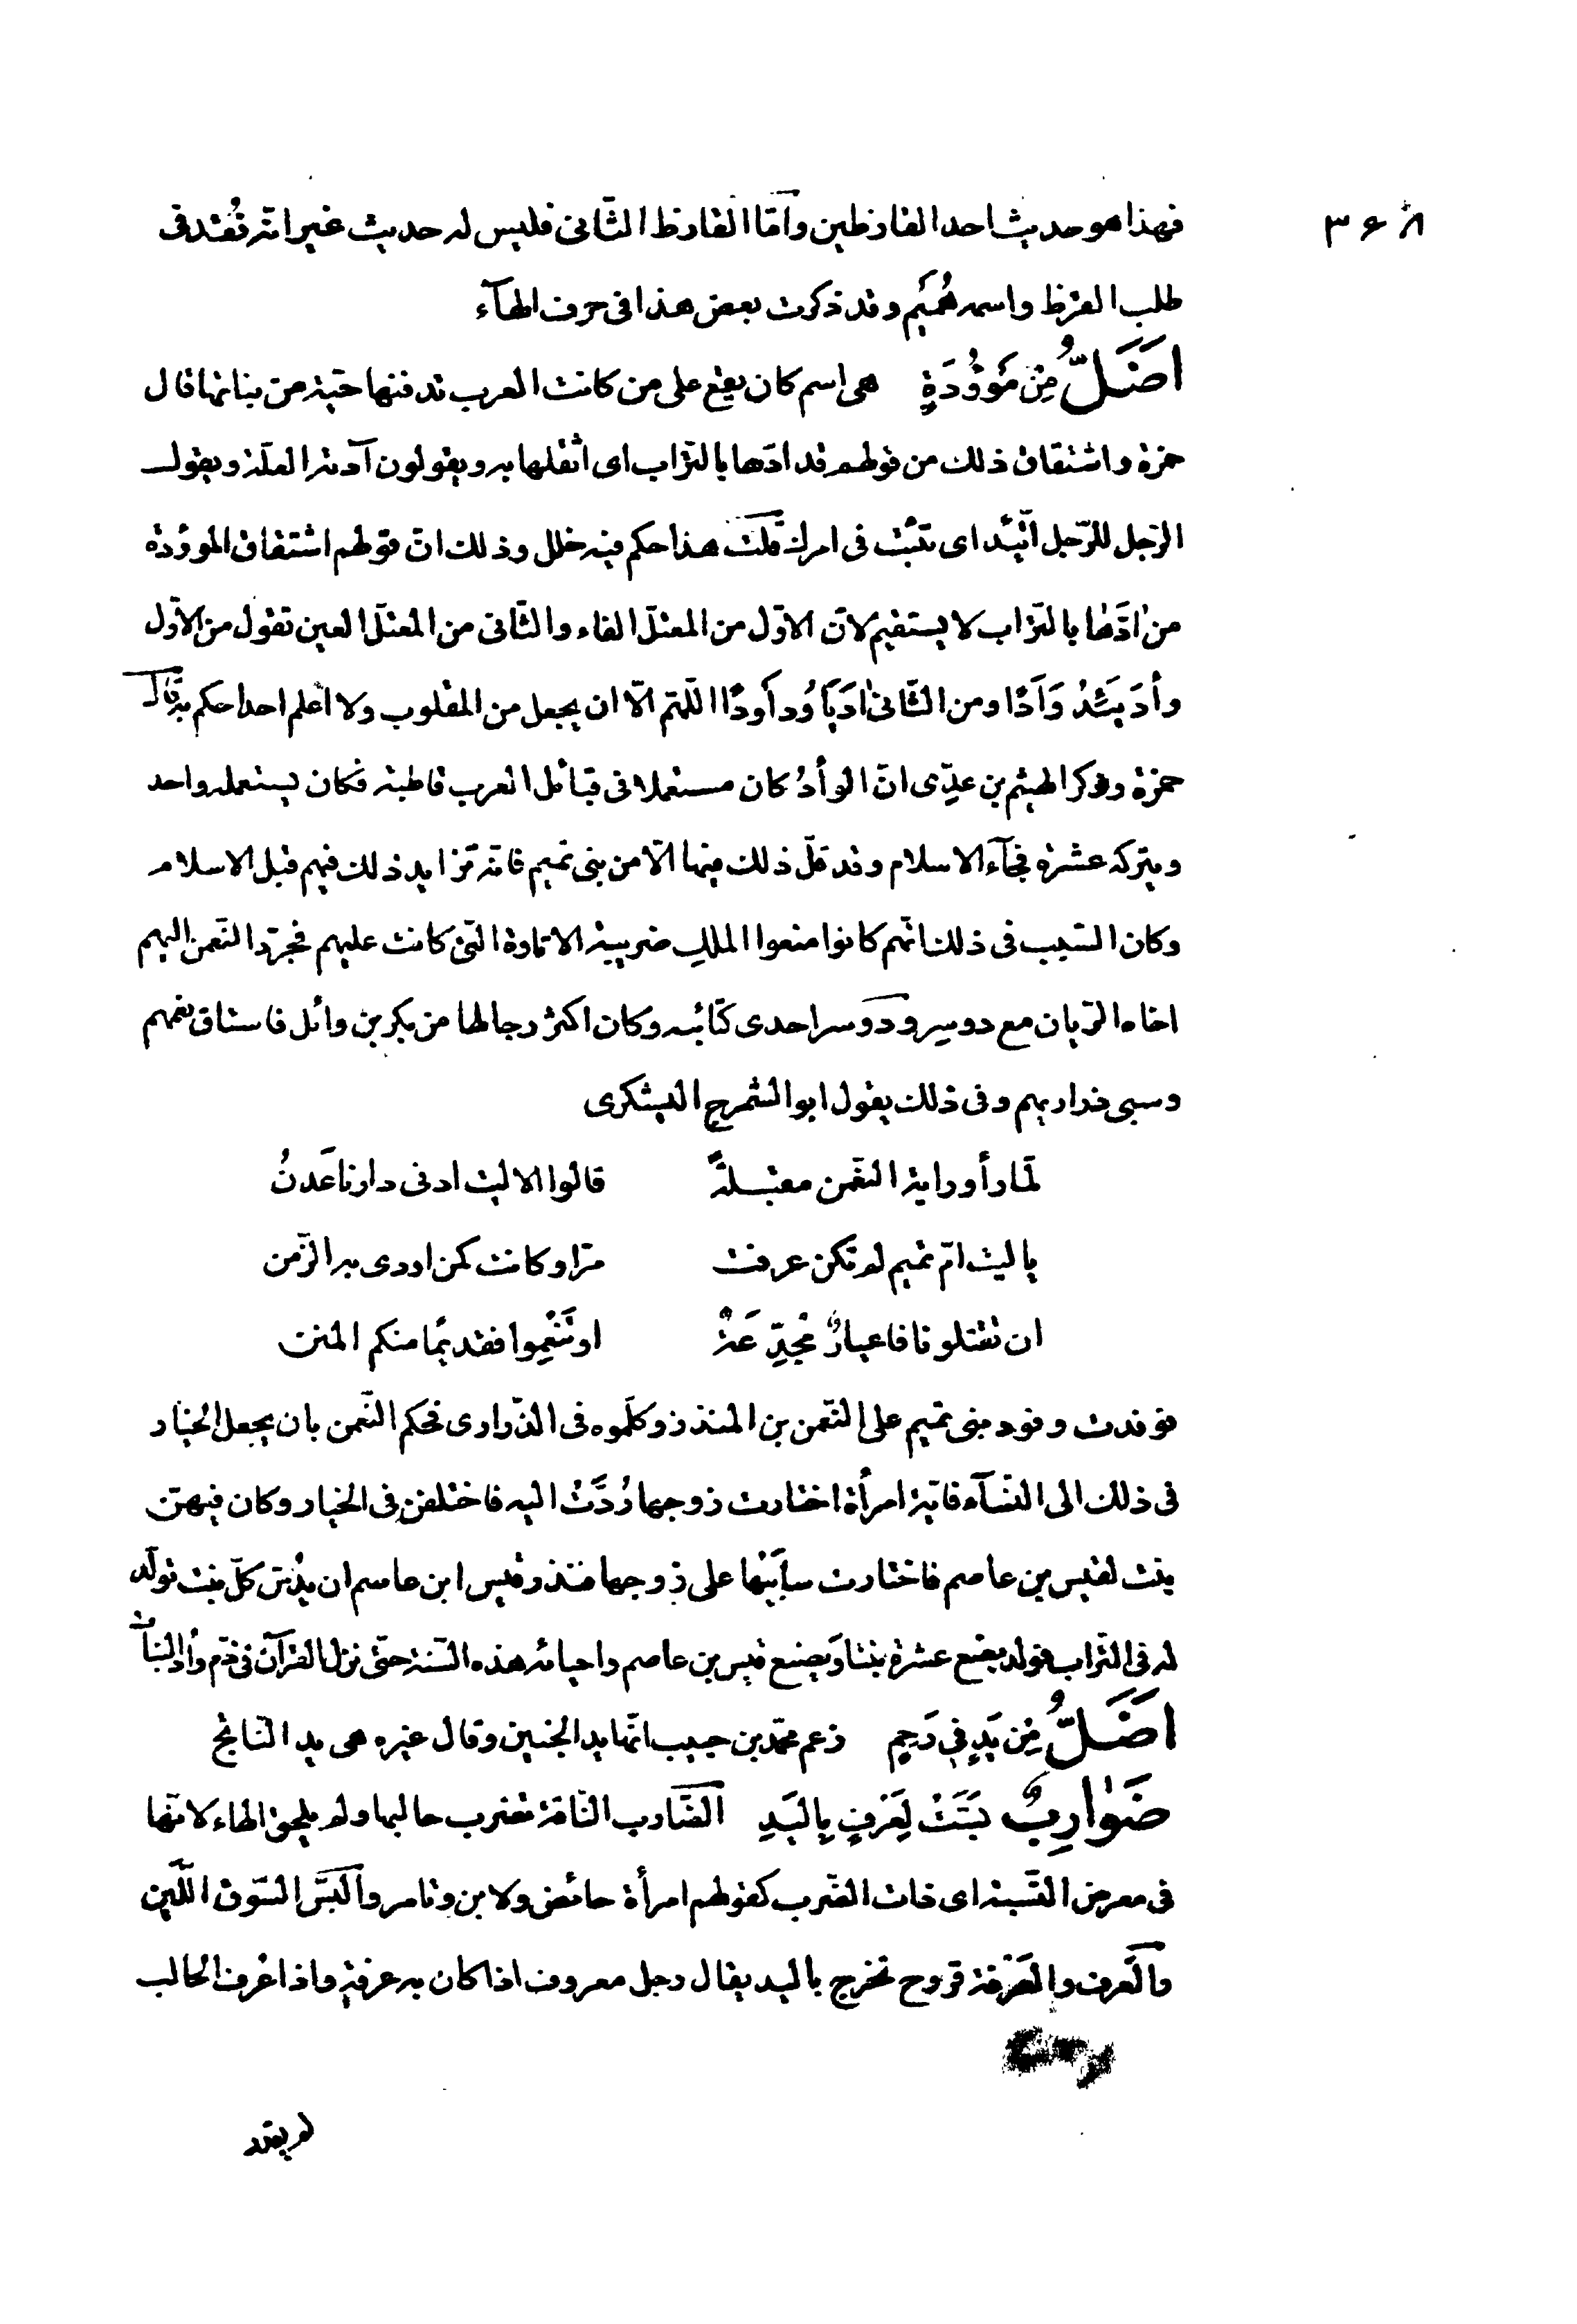 ٣۶٨
فهذا هو حديث احد القارظين وامّا القارظ الثّانى فليس له حديث غير انّه فُقد فى
طلب القرظ واسمه هُمَيم وقد ذكرت بعض هذا فى حرف الهآء
اَضَلُّ مِنْ مَوْؤُدَةٍ هى اسم كان يقع على من كانت العرب تدفنها حيّة من بناتها قال
حمزة واشتقاق ذلك من قولهم قد ادَها بالتّراب اى اثقلها به ويقولون آدته العلّة ويقول
الرّجل للرّجل اتّئد اى تثبّت فى امرك قلت هذا حكم فيه خلل وذلك انّ قولهم اشتقاق الموؤدة
من ادَها بالتّراب لا يستقيم لانّ الاوّل من المعتلّ الفاء والثّانى من المعتلّ العين تقول من الاوّل
وأدَ يَئدُ وَأدًا ومن الثّانى ادَ يَأوُد أودًا اللّهمّ الّا ان يجعل من المقلوب ولا اعلم احدا حكم به قال
حمزة وذكر الهيثم بن عدّى انّ الوأدُ كان مستعملا فى قبائل العرب قاطبة فكان يستعمله واحد
ويتركه عشرة فجآء الاسلام وقد قلّ ذلك منها الّا من بنى تميم فانّه تزايد ذلك فيهم قبل الاسلام
وكان السّبب فى ذلك انّهم كانوا منعوا الملك ضريبة الاتاوة الّتى كانت عليهم فجرّد النّعمن اليهم
اخاه الرّيان مع دوسر ودوسر احدى كتائبه وكان اكثر رجالها من بكر بن وائل فاستاق نعمهم
وسبى ذراريهم وفى ذلك يقول ابو المشمرج اليشكرى
لمّا رأو راية النّعمن مقبلةً قالوا الا ليت ادنى دارنا عَدنُ
يا ليت امّ تميم لم تكن عرفت مرّا وكانت كمن اودى به الزّمن
ان تقتلونا فاعيارٌ مُجدِّعَةٌ او تُنْعِموا فقديمًا منكم المنن
فوفدت وفود بنى تميم على النّعمن بن المنذر وكلّموه فى الذّرارى فحكم النّعمن بان يجعل الخيار
فى ذلك الى النّسآء فايّة امرأة اختارت زوجها رُدَّتْ اليه فاختلفن فى الخيار وكان فيهنّ
بنت لقيس بن عاصم فاختارت سأبيَها على زوجها فنذر قيس ابن عاصم ان يدُسّ كلّ بنت تولد
له فى التّراب فوأد بضع عشرة بنتا وبصنيع قيس بن عاصم واحيائه هذه السّنة حتّى نزل القرآن فى ذمّ وأد البنات
اَضَلُّ مِنْ يَدٍ فى رَحِمٍ زعم محمّد بن حبيب انّها يد الجنين وقال غيره هى يد النّاتج
ضَوٰارِبُ بَسَتْ لِعَرْفٍ بِاليَدِ الضّارب النّاقة تضرب حالبها ولم يلحق الهاء لانّها
فى معرض النّسبة اى ذات الضّرب كقولهم امرأة حائض ولابن وتامر والبَسّ السّوق اللّين
والعرف والعَرْفة قروح تخرج باليد يقال رجل معروف اذا كان به عرفة واذا عُرف الحالب
لم يقد